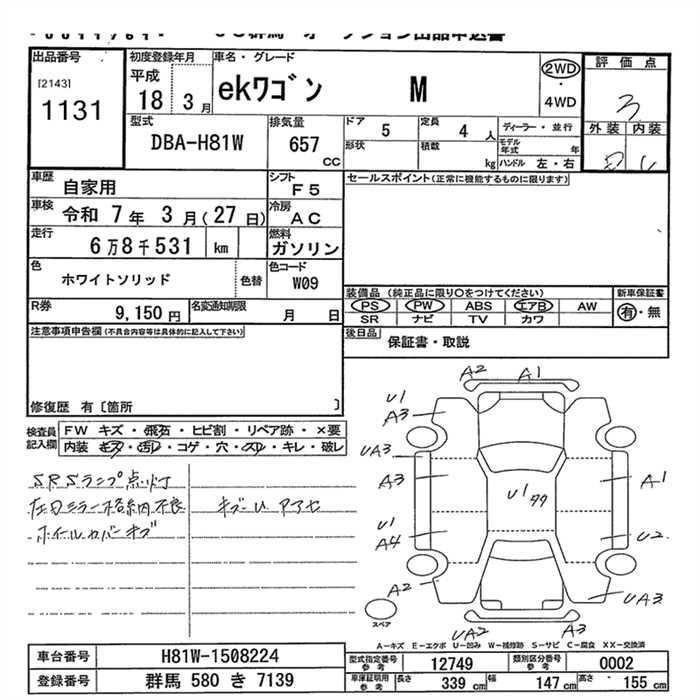 出品番号
[2143]
1131
初度登録年月
平成
18 3 月
車名・グレード
ekワゴン M
2WD
・
4WD
評価点
3
外装 内装
型式
DBA-H81W
排気量
657
CC
ドア 5
定員 4 人
形状
積載 kg
ディーラー・並行
モデル年式 年
ハンドル 左・右
車歴 自家用
シフト F5
セールスポイント(正常に機能するものに限ります)
車検 令和 7 年 3 月 (27 日)
冷房 AC
走行 6万8千531 km
燃料 ガソリン
色 ホワイトソリッド 色替
色コード W09
装備品 (純正品に限り○をつけてください)
新車保証書
PS PW ABS エアB AW
有・無
SR ナビ TV カワ
R券 9,150 円
名変通知期限 月 日
後日品 保証書・取説
注意事項申告欄(不具合内容等は具体的に記入して下さい)
修復歴 有〔箇所 〕
検査員記入欄
FW キズ・飛石・ヒビ割・リペア跡・×要
内装 キズ・汚レ・コゲ・穴・スレ・キレ・破レ
SRSランプ点灯
左ドアミラー格納不良
ホイールカバーキズ
キズ・U アアセ
A2 A1
U1
A3
UA3
A3
A1
U1
U1
A4
U2
A2
UA3
UA2
スペア
A−キズ E−エクボ U−凹み W−補修跡 S−サビ C−腐食 XX−交換済
車台番号 H81W-1508224
登録番号 群馬 580 き 7139
型式指定番号 参考 12749
類別区分番号 参考 0002
車庫証明用 参考 長さ 339 cm 幅 147 cm 高さ 155 cm